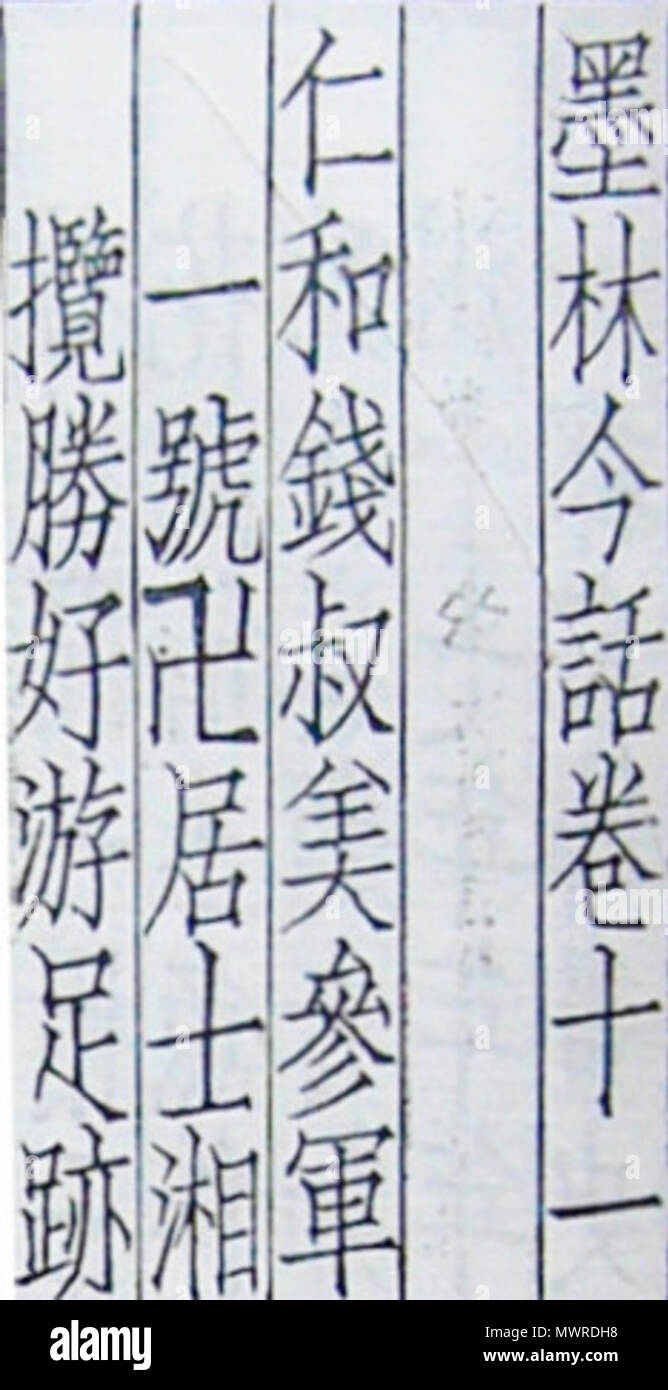 墨林今話卷十一
仁和錢叔美參軍
一號卍居士湘
攬勝好游足跡
alamy
Image ID: MWRDH8
www.alamy.com